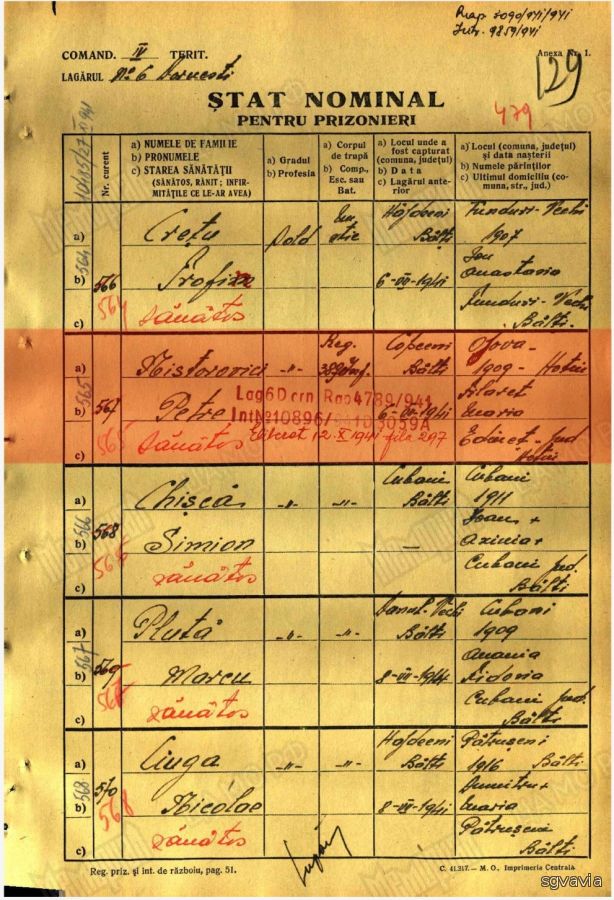 Rap. 7090/941/941
Intr. 9859/941
COMAND. IV TERIT.
Anexa Nr. 1.
LAGĂRUL No 6
129
ȘTAT NOMINAL
PENTRU PRIZONIERI
479
Nr. curent
a) NUMELE DE FAMILIE
b) PRONUMELE
c) STAREA SĂNĂTĂȚII
(SĂNĂTOS, RĂNIT; INFIR-
MITĂȚILE CE LE-AR AVEA)
a) Gradul
b) Profesia
a) Corpul
de trupă
b) Comp.,
Esc. sau
Bat.
a) Locul unde a
fost capturat
(comuna, județul)
b) Data
c) Lagărul ante-
rior
a) Locul (comuna, județul)
și data nașterii
b) Numele părinților
c) Ultimul domiciliu (co-
muna, str., jud.)
a) Crețu Sold Bălți Funduri-Vechi
1907
b) 564 566 6-VII-1941 Ion
Anastasia
c) 564 Sănătos Funduri-Vechi
Bălți.
a) Nistorovici -"- Reg. Bălți 1909 Hotin
Lag6Dorn Rap4789/941
b) 565 567 Petre 6-VII-1941 Filaret
Maria
c) 565 Sănătos Liberat 12-X-1941 fila 297 Edineț jud.
Hotin
a) Chișcă -"- -"- Cubani Bălți Cubani
1911
b) 566 568 Simion — Ioan +
Axinia +
c) 566 sănătos Cubani jud.
Bălți
a) Plută -"- -"- Bălți Cubani
1909
b) 567 569 Marcu 8-VII-1941 Anania
c) sănătos Cubani jud.
Bălți
a) Ciuga -"- -"- Bălți 1916 Bălți
b) 568 570 Nicolae 8-VII-1941 Dumitru +
Maria
c) 568 Sănătos Bălți
Reg. priz. și int. de războiu, pag. 51.
C. 41.317.— M. O., Imprimeria Centrală.
sgvavia